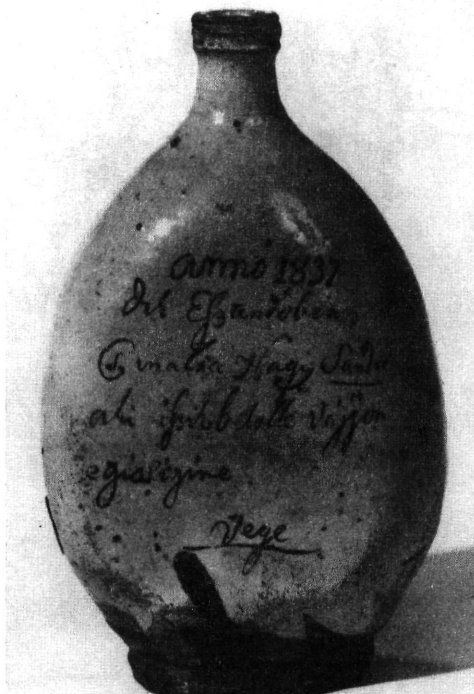 anno 1837
Det Esztendőben
Csinálta Nagy Sándor
aki iszik belőle váljon
egiségine
Vege